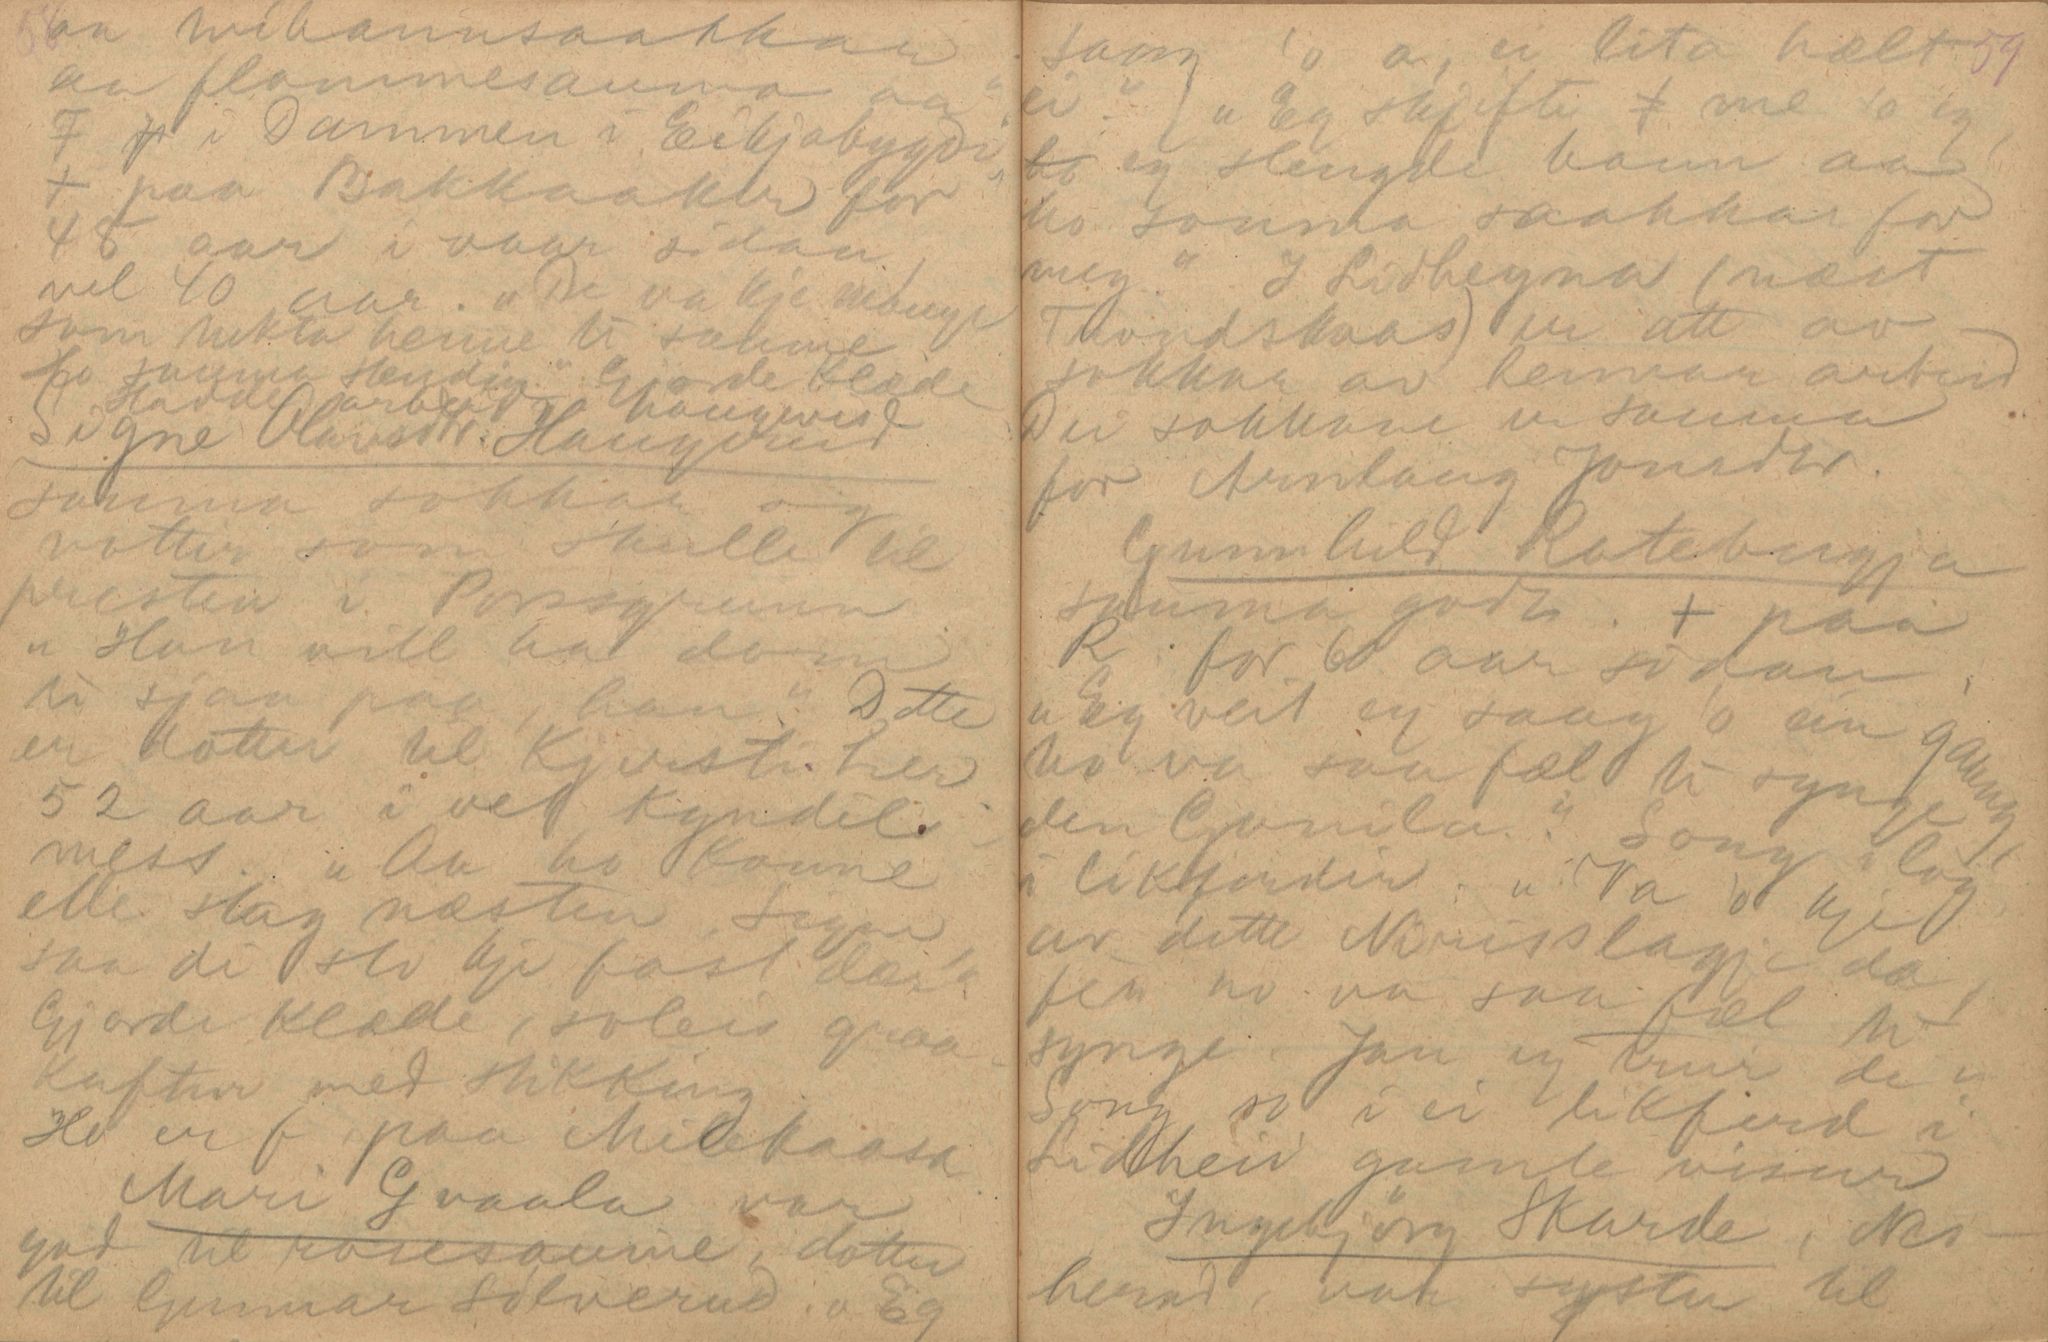 58
aa mibaannsaakkaa
aa flammesauma aa"
F i Dammen i Eikjabygdi,
+ paa Bakkaaker for
48 aar i vaar sidan,
vel 40 aar. „De va kje mange
som hekta henne ti saume
ho sauma stendig." Gjorde klæde
Hadde arbeid
Signe Olavsdtr. Haugerud
sauma sokkar og
votter som skulle til
presten i Porsgrunn
„Han vill ha dom
ti sjaa paa, han." Dette
er dotter til Kjersti her
52 aar i vet Kyndils-
mess. „Aa ho kunne
elle slag næsten, Signe
saa di sto kje fast for a
Gjorde klæde, soleis graa-
kufter med stikking.
Ho er f. paa Milekaasa
Mari Gvaala var
god til rosesaume, dotter
til Gunnar Sølverud. „Eg
59
saag 'o a, ei lita hælt
ei". „Eg skifti me 'o eg,
eg slengde baan aa
ho sauma saakkar for
meg." I Lidheigna (næst
Trondskaas) er att av
sokkar av hennar arbeid
Dei sokkane er sauma
for Arnlaug Jonsdtr.
Gunnhild Rotebergja
sauma godt. + paa
R. for 60 aar sidan.
„Eg veit eg saag 'o ein gaang,
ho va saa fæl ti synge
den Gunila." Song i lag
i likfardir. „Va 'o kje
av dette Nirisslagje da,
fer ho va saa fæl ti
synge. Jau eg trur de"
Song so i ei likferd i
Lidheid gamle visur
Ingebjörg Skarde, Nes-
herad, var syster til